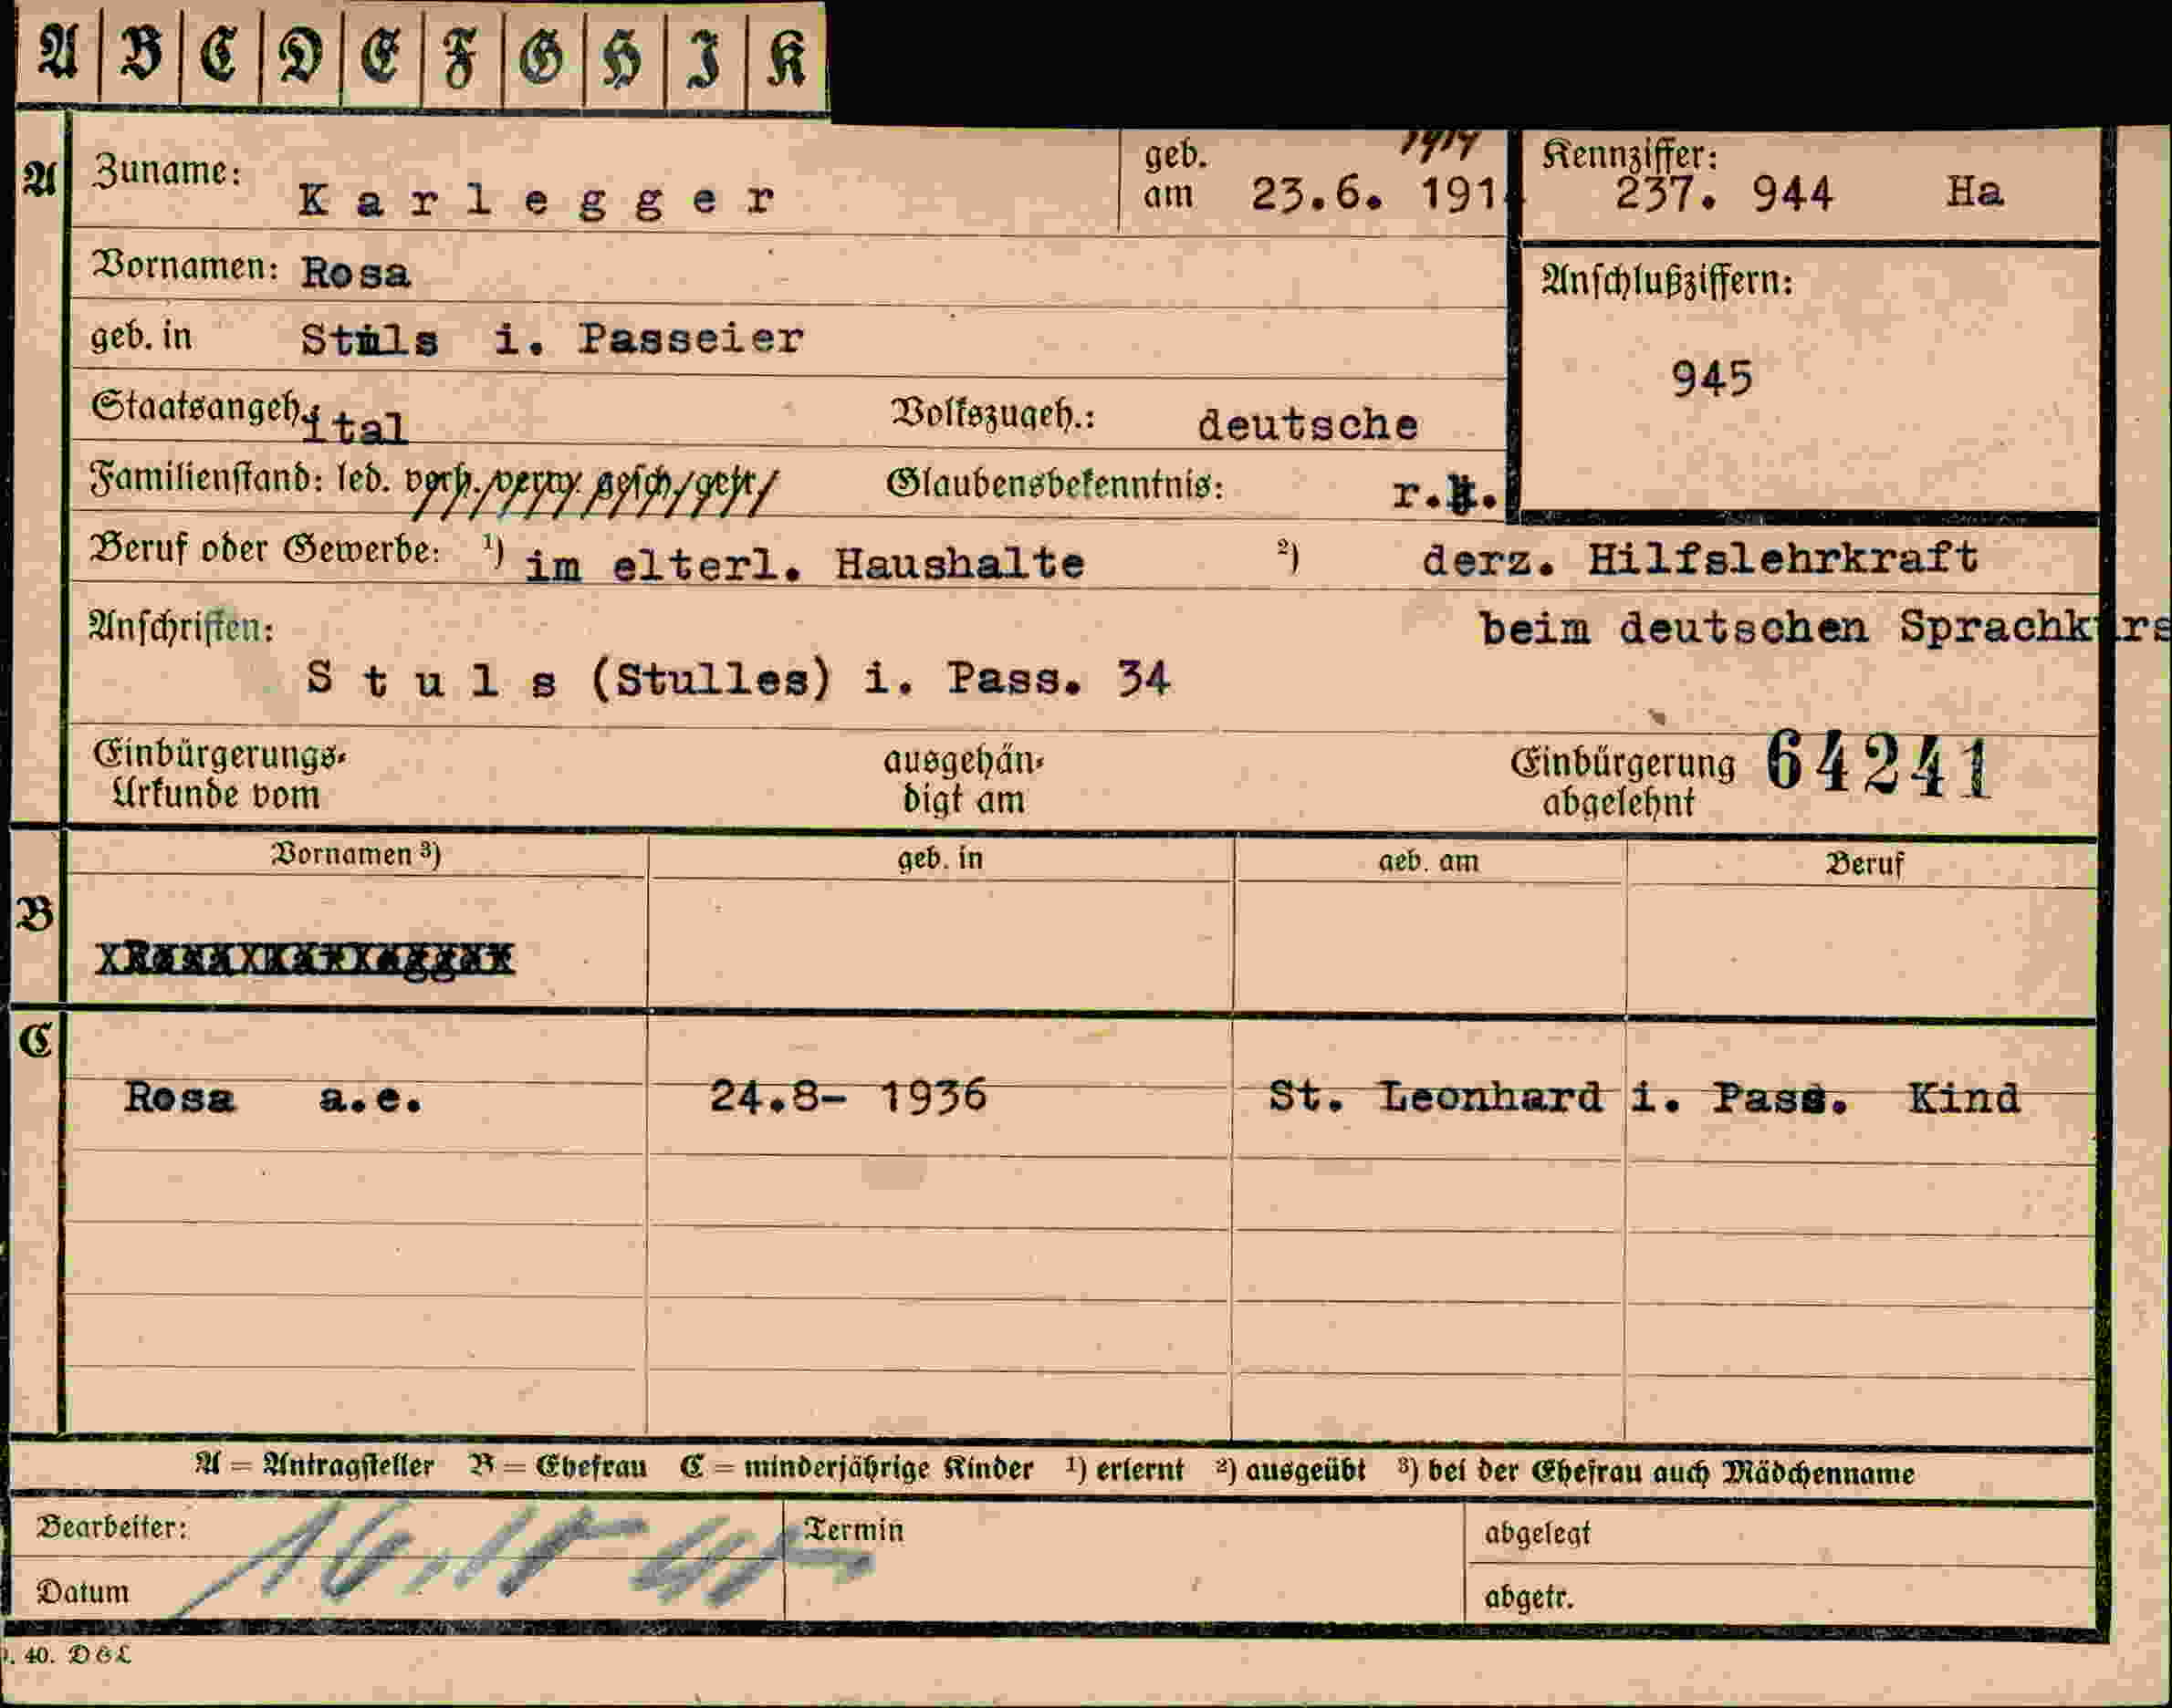 A B C D E F G H I K
A Zuname: Karlegger geb. am 23.6. 191 1914 Kennziffer: 237. 944 Ha
Vornamen: Rosa
Anschlußziffern:
geb. in Stuls i. Passeier
945
Staatsangeh. ital Volkszugeh.: deutsche
Familienstand: led. verh. verw. gesch. getr. Glaubensbekenntnis: r.k.
Beruf oder Gewerbe: ¹) im elterl. Haushalte ²) derz. Hilfslehrkraft
Anschriften: beim deutschen Sprachkurs
Stuls (Stulles) i. Pass. 34
Einbürgerungs- ausgehän- Einbürgerung 64241
Urkunde vom digt am abgelehnt
Vornamen ³) geb. in geb. am Beruf
B
C
Rosa a.e. 24.8- 1936 St. Leonhard i. Pass. Kind
A = Antragsteller B = Ehefrau C = minderjährige Kinder ¹) erlernt ²) ausgeübt ³) bei der Ehefrau auch Mädchenname
Bearbeiter: Termin abgelegt
Datum abgetr.
40. DGL